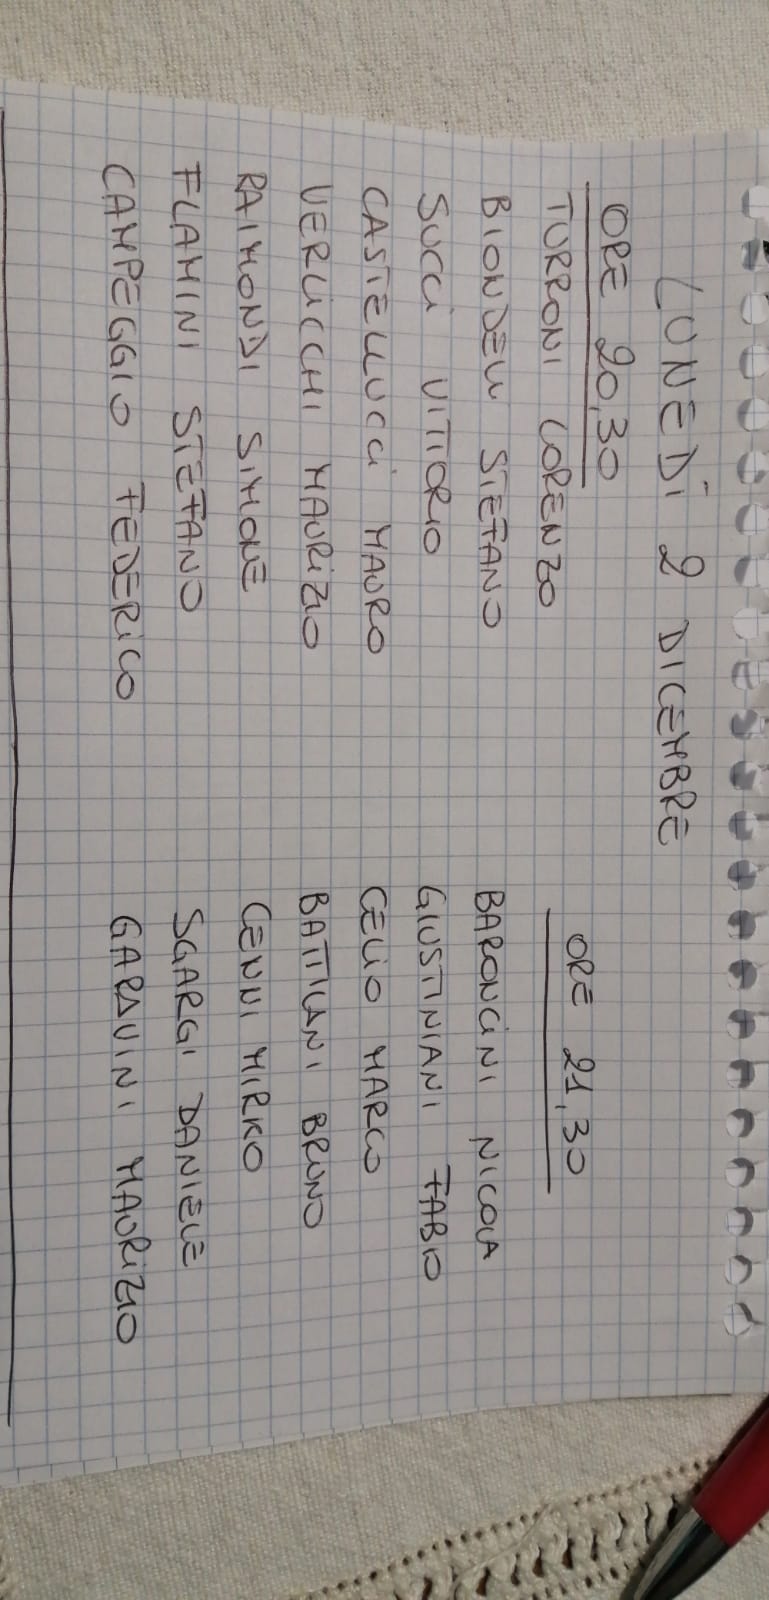 LUNEDÌ 2 DICEMBRE
ORE 20,30
TURRONI LORENZO
BIONDELLI STEFANO
SUCCI VITTORIO
CASTELLUCCI MAURO
VERLICCHI MAURIZIO
RAIMONDI SIMONE
FLAMINI STEFANO
CAMPEGGIO FEDERICO
ORE 21,30
BARONCINI NICOLA
GIUSTINIANI FABIO
CELIO MARCO
BATTILANI BRUNO
CENNI MIRKO
SGARGI DANIELE
GARAVINI MAURIZIO